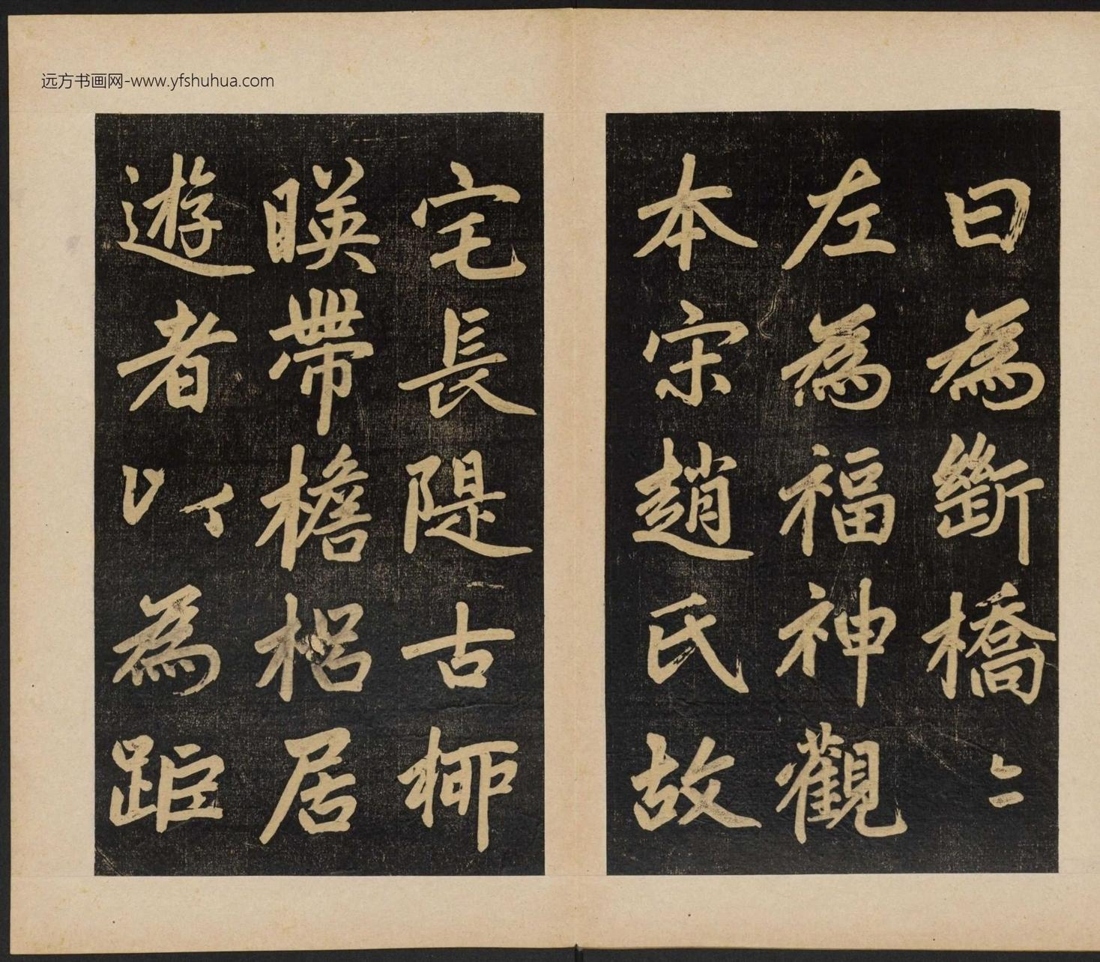 远方书画网-www.yfshuhua.com
曰為斷橋〻
左為福神觀
本宋趙氏故
宅長隄古桺
暎帶檐梠居
遊者以為距